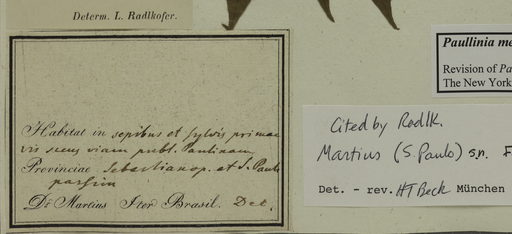 Determ. L. Radlkofer.
Habitat in sepibus et sylvis primae
vis secus viam publ. Paulinam
Provinciae Sebastianop. et S. Pauli
passim
Dr Martius Iter Brasil. Dec.
Paullinia me
Revision of Pa
The New York
Cited by Radlk.
Martius (S. Paulo) s.n. F
Det. - rev. HT Beck München